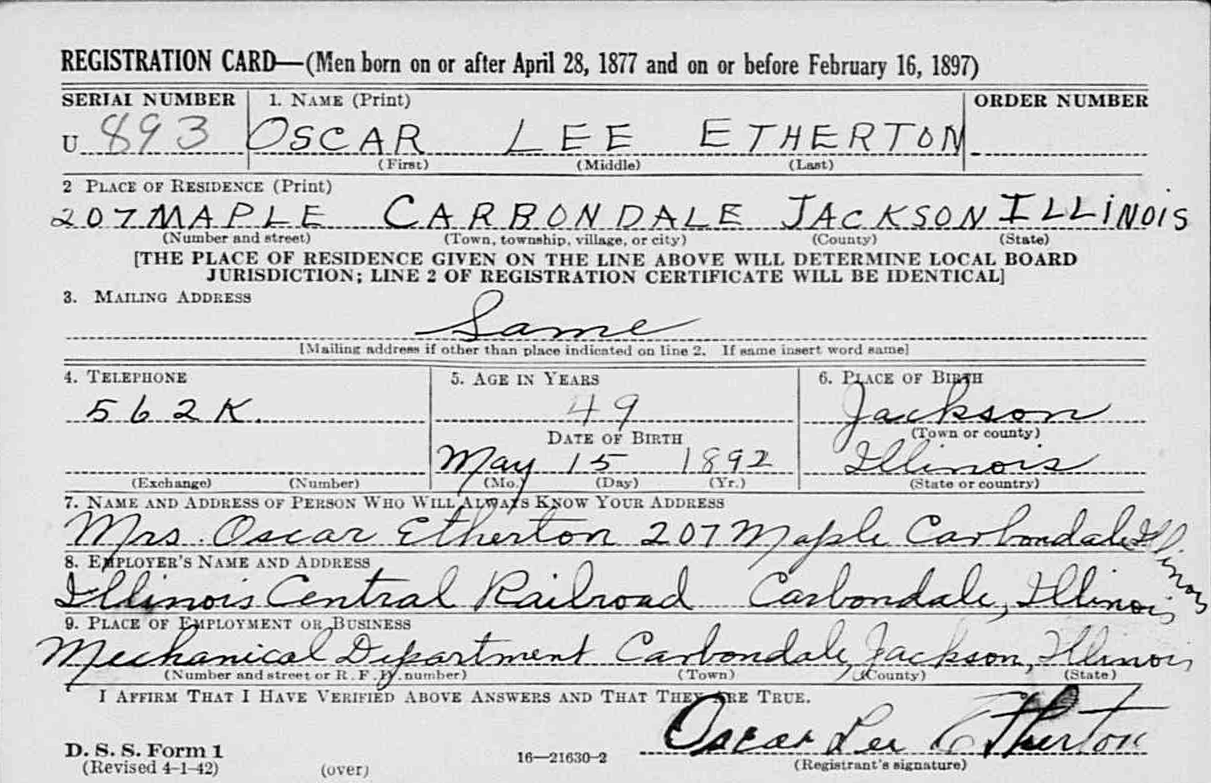 REGISTRATION CARD—(Men born on or after April 28, 1877 and on or before February 16, 1897)
SERIAL NUMBER 1. NAME (Print) ORDER NUMBER
U 893 OSCAR LEE ETHERTON
(First) (Middle) (Last)
2 PLACE OF RESIDENCE (Print)
207 MAPLE CARBONDALE JACKSON ILLINOIS
(Number and street) (Town, township, village, or city) (County) (State)
[THE PLACE OF RESIDENCE GIVEN ON THE LINE ABOVE WILL DETERMINE LOCAL BOARD
JURISDICTION; LINE 2 OF REGISTRATION CERTIFICATE WILL BE IDENTICAL]
3. MAILING ADDRESS
Same
[Mailing address if other than place indicated on line 2. If same insert word same]
4. TELEPHONE 5. AGE IN YEARS 6. PLACE OF BIRTH
562K. 49 Jackson
DATE OF BIRTH (Town or county)
May 15 1892 Illinois
(Exchange) (Number) (Mo.) (Day) (Yr.) (State or country)
7. NAME AND ADDRESS OF PERSON WHO WILL ALWAYS KNOW YOUR ADDRESS
Mrs. Oscar Etherton 207 Maple Carbondale Illinois
8. EMPLOYER'S NAME AND ADDRESS
Illinois Central Railroad Carbondale, Illinois
9. PLACE OF EMPLOYMENT OR BUSINESS
Mechanical Department Carbondale, Jackson, Illinois
(Number and street or R. F. D. number) (Town) (County) (State)
I AFFIRM THAT I HAVE VERIFIED ABOVE ANSWERS AND THAT THEY ARE TRUE.
Oscar Lee Etherton
D. S. S. Form 1
(Revised 4-1-42) (over) 16—21630-2 (Registrant's signature)